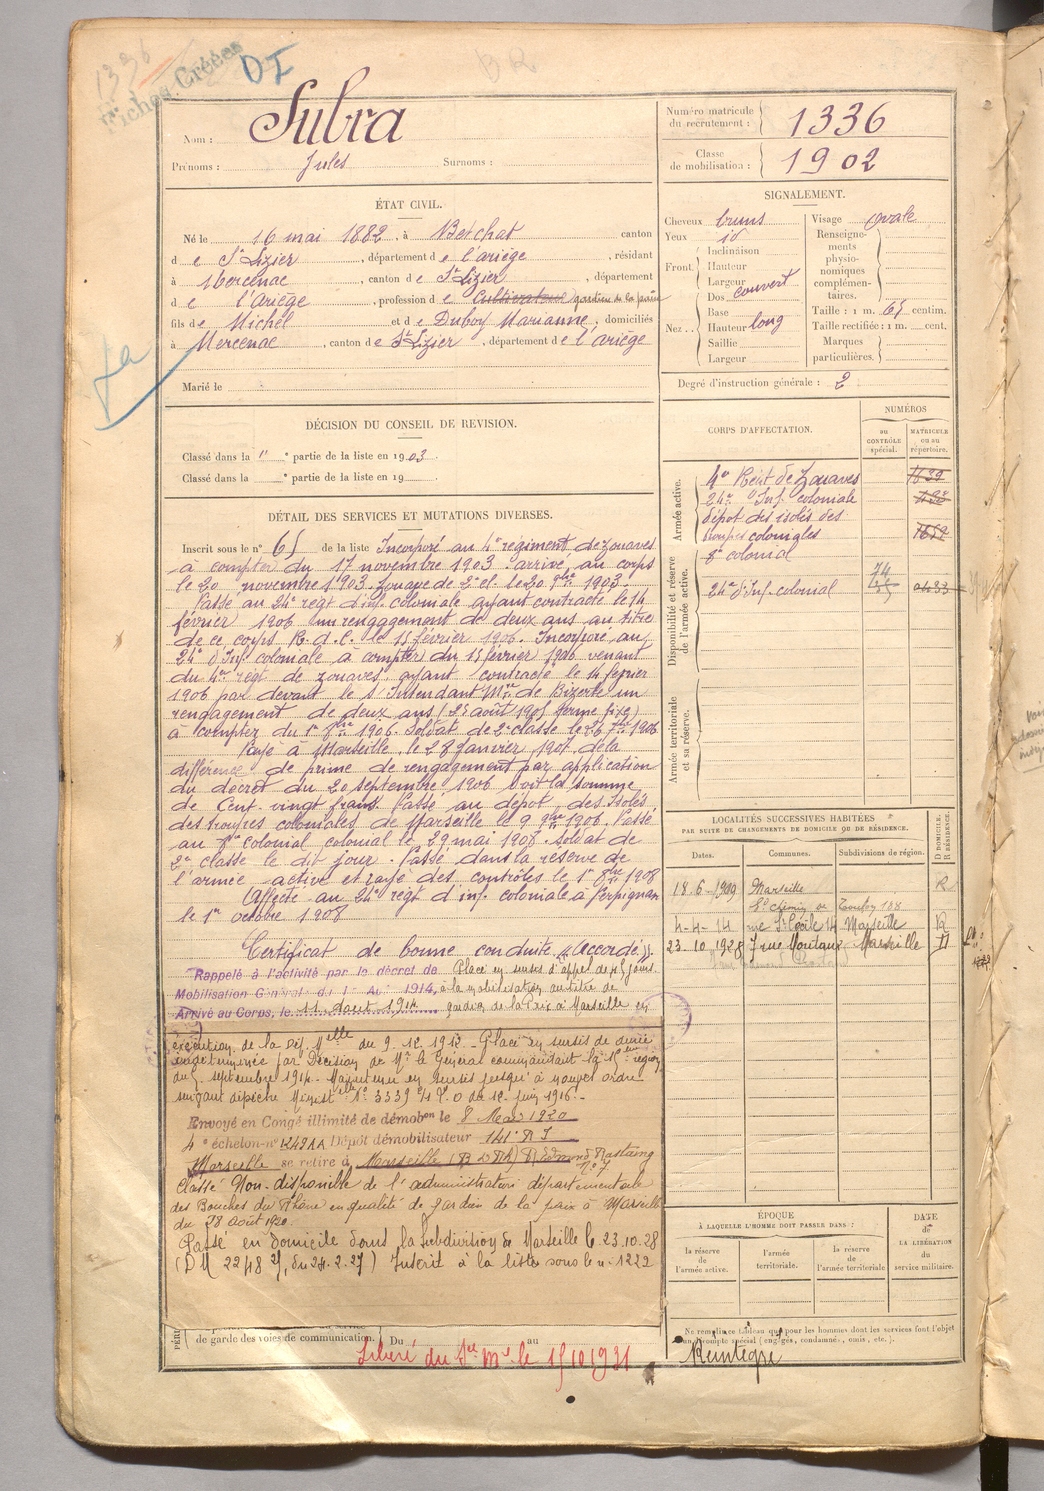 1336
Fiches Créées
DI
BR
Nom : Subra
Prénoms : Jules Surnoms :
Numéro matricule
du recrutement : 1336
Classe
de mobilisation : 1902
ÉTAT CIVIL.
Né le 16 mai 1882, à Betchat canton
de St Lizier, département de l'ariège, résidant
à Mercenac, canton de St Lizier, département
de l'Ariège, profession de Cultivateur gardien de la paix
fils de Michel et de Duboy Marianne, domiciliés
à Mercenac, canton de St Lizier, département de l'ariège
Marié le
SIGNALEMENT.
Cheveux bruns
Yeux id
Front Inclinaison
Hauteur
Largeur
Nez Dos couvert
Base
Hauteur long
Saillie
Largeur
Visage ovale
Renseigne-
ments
physio-
nomiques
complémen-
taires.
Taille : 1 m. 65 centim.
Taille rectifiée : 1 m. cent.
Marques
particulières.
Degré d'instruction générale : 2
DÉCISION DU CONSEIL DE REVISION.
Classé dans la " e partie de la liste en 1903.
Classé dans la e partie de la liste en 19
DÉTAIL DES SERVICES ET MUTATIONS DIVERSES.
Inscrit sous le n° 65 de la liste Incorporé au 4e régiment de Zouaves
à compter du 17 novembre 1903 arrivé au corps
le 20 novembre 1903. Zouave de 2e cl. le 20 9bre 1903.
Passé au 24e régt d'inf. coloniale ayant contracté le 14
février 1906 un rengagement de deux ans au titre
de ce corps R.d.C. le 15 février 1906. Incorporé au
24e d'Inf. coloniale à compter du 15 février 1906 venant
du 4e régt de zouaves ayant contracté le 14 février
1906 par devant le s/ Intendant Mre de Bizerte un
rengagement de deux ans (25 août 1905 terme fixe)
à compter du 1er 8bre 1906. Soldat de 2e classe le 26 7bre 1906
Payé à Marseille, le 28 janvier 1907 de la
différence de prime de rengagement par application
du décret du 20 septembre 1906 soit la somme
de Cent-vingt francs. Passé au dépot des Isolés
des troupes coloniales de Marseille le 9 9bre 1906. Passé
au 8e colonial colonial le 29 mai 1907. Soldat de
2e classe le dit jour. Passé dans la réserve de
l'armée active et rayé des contrôles le 1er 8bre 1908
Affecté au 24e régt d'inf. coloniale à Perpignan
le 1er octobre 1908
Certificat de bonne conduite "Accordé".
Rappelé à l'activité par le décret de
Mobilisation Générale du 1er Août 1914,
Arrivé au Corps, le 11 Aout 1914
Placé en sursis d'appel de 45 jours
à la mobilisation au titre de
gardien de la Paix à Marseille en
exécution de la Dép. Melle du 9.12.1912 - Placé en sursis de durée
indéterminée par Décision de Mr le Général commandant la 15eme région
du 5 septembre 1914. Maintenu en sursis jusqu'à nouvel ordre
suivant dépêche Ministelle N° 3339 du 12 juin 1916. -
Envoyé en Congé illimité de démobon le 8 Mars 1920
4e échelon-n° 1249AA Dépôt démobilisateur 141e RI
Marseille se retire à Marseille R. Edmond Rostaing
N° 7
Classé Non-disponible de l'administration départementale
des Bouches du Rhône en qualité de gardien de la paix à Marseille
du 28 août 1920.
Passé en domicile dans la subdivision de Marseille le 23.10.28
(DM 2248 , du 24.2.27) Inscrit à la liste sous le n° 1222
de garde des voies de communication. Du au
Libéré du Sce Mre le 15 10 1931
CORPS D'AFFECTATION.
NUMÉROS
au
CONTRÔLE
spécial.
MATRICULE
ou au
répertoire.
Armée active.
4e Régt de Zouaves 1639
24e d'Inf. coloniale
dépot des isolés des
troupes coloniales 1652
8e colonial
Disponibilité et réserve
de l'armée active.
24e d'Inf. colonial
Armée territoriale
et sa réserve.
LOCALITÉS SUCCESSIVES HABITÉES
PAR SUITE DE CHANGEMENTS DE DOMICILE OU DE RÉSIDENCE.
D DOMICILE.
R RÉSIDENCE.
Dates. Communes. Subdivisions de région.
18-6-1909 Marseille R
Bd chemin de Toulon 108
4-4-14 rue Ste Cécile 14 Marseille R
23.10.1928 7 rue Marseille D
ÉPOQUE
À LAQUELLE L'HOMME DOIT PASSER DANS :
la réserve
de
l'armée active.
l'armée
territoriale.
la réserve
de
l'armée territoriale
DATE
de
LA LIBÉRATION
du
service militaire.
Ne remplir ce tableau que pour les hommes dont les services font l'objet
d'un décompte spécial (engagés, condamnés, omis, etc.).
Réintégré